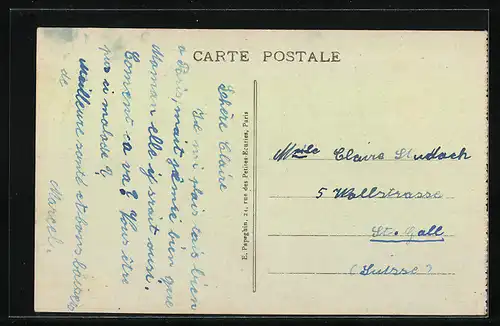 CARTE POSTALE
Schère Claire
Je mi plais rais bien
a Paris, mait j'émie bien que
Maman elle y srait ousi.
Coment ca va? Vous être
pas si malade?
Meilleure santé et bons baisers
de
Marcel.
E. Papeghin, 21, rue des Petites Ecuries, Paris
Mlle Claire Studach
5 Wallstrasse
St. Gall
(Suisse)